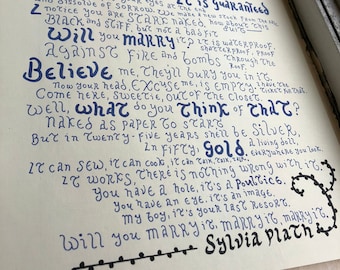 and dissolve of sorrow. We make new stock from the salt.
I notice you are stark naked, how about this suit
Black and stiff, but not a bad fit.
Will you marry it? It is waterproof,
shatterproof, proof
Against fire and bombs through the
Believe me, they'll bury you in it.
Now your head, excuse me, is empty.
Come here, sweetie, out of the closet.
Well, what do you think of that?
Naked as paper to start
But in twenty-five years she'll be silver,
In fifty, gold. A living doll,
everywhere you look.
It can sew, it can cook, it can talk, talk, talk.
It works, there is nothing wrong with it.
You have a hole, it's a poultice.
You have an eye, it's an image.
My boy, it's your last resort.
Will you marry it, marry it, marry it.
Sylvia Plath